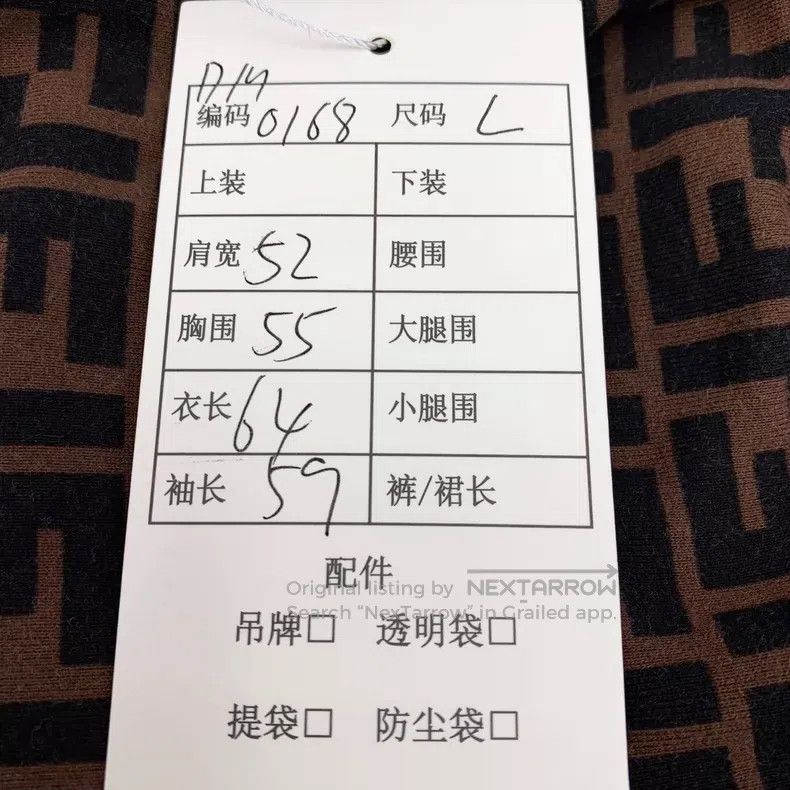 编码 0168 尺码 L
上装 下装
肩宽 52 腰围
胸围 55 大腿围
衣长 64 小腿围
袖长 59 裤/裙长
配件
Original listing by NEXTARROW
Search “NexTarrow” in Grailed app.
吊牌□ 透明袋□
提袋□ 防尘袋□